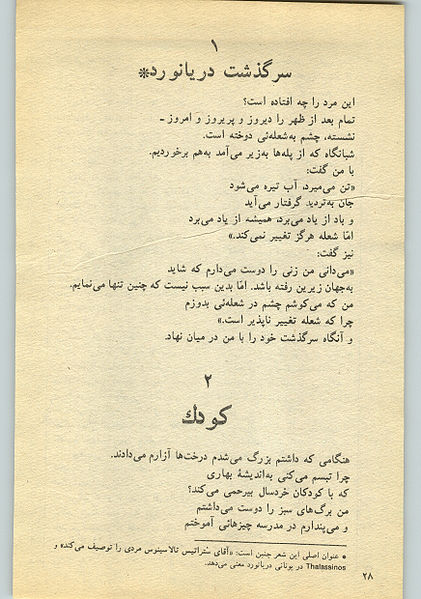 ۱
سرگذشت دریانورد*
این مرد را چه افتاده است؟
تمام بعد از ظهر را دیروز و پریروز و امروز ـ
نشسته، چشم به‌شعله‌ئی دوخته است.
شبانگاه که از پله‌ها به‌زیر می‌آمد به‌هم برخوردیم.
با من گفت:
«تن می‌میرد، آب تیره می‌شود
جان به‌تردید گرفتار می‌آید
و باد از یاد می‌برد، همیشه از یاد می‌برد
امّا شعله هرگز تغییر نمی‌کند.»
نیز گفت:
«می‌دانی من زنی را دوست می‌دارم که شاید
به‌جهان زیرین رفته باشد. امّا بدین سبب نیست که چنین تنها می‌نمایم.
من که می‌کوشم چشم در شعله‌ئی بدوزم
چرا که شعله تغییر ناپذیر است.»
و آنگاه سرگذشت خود را با من در میان نهاد.
۲
کودك
هنگامی که داشتم بزرگ می‌شدم درخت‌ها آزارم می‌دادند.
چرا تبسم می‌کنی به‌اندیشهٔ بهاری
که با کودکان خردسال بیرحمی می‌کند؟
من برگ‌های سبز را دوست می‌داشتم
و می‌پندارم در مدرسه چیزهائی آموختم
* عنوان اصلی این شعر چنین است: «آقای ستراتیس تالاسینوس مردی را توصیف می‌کند» و
Thalassinos در یونانی دریانورد معنی می‌دهد.
۲۸